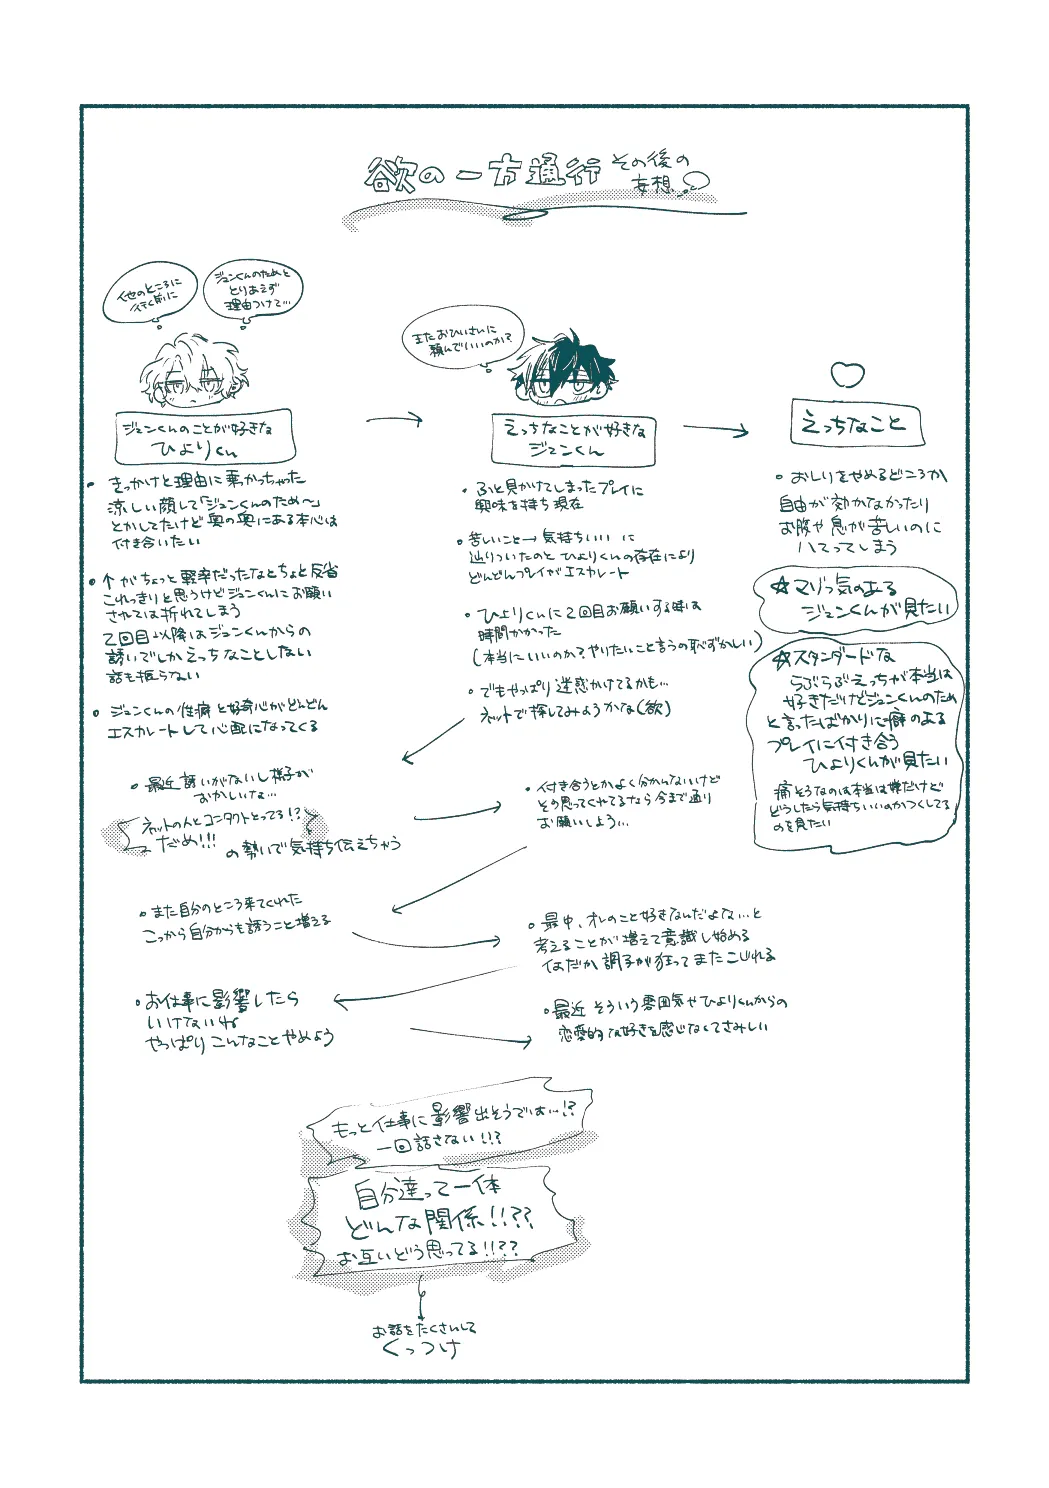 欲の一方通行 その後の
妄想
他のところに
行く前に
ジュンくんのためと
とりあえず
理由つけて…
ジュンくんのことが好きな
ひよりくん
・きっかけと理由に乗っかっちゃった
涼しい顔して「ジュンくんのため〜」
とかしてたけど奥の奥にある本心は
付き合いたい
・↑がちょっと軽率だったなとちょと反省
これっきりと思うけどジュンくんにお願い
されては折れてしまう
2回目以降はジュンくんからの
誘いでしかえっちなことしない
話も振らない
・ジュンくんの性癖と好奇心がどんどん
エスカレートして心配になってくる
またおひいさんに
頼んでいいのか?
えっちなことが好きな
ジュンくん
・ふと見かけてしまったプレイに
興味を持ち現在
・苦しいこと→気持ちいい に
辿りついたのと ひよりくんの存在により
どんどんプレイがエスカレート
・ひよりくんに2回目お願いする時は
時間かかった
(本当にいいのか?やりたいこと言うの恥ずかしい)
・でもやっぱり迷惑かけてるかも…
ネットで探してみようかな(欲)
えっちなこと
・おしりをやめるどころか
自由が効かなかったり
お腹や息が苦しいのに
ハマってしまう
☆マゾっ気のある
ジュンくんが見たい
☆スタンダードな
らぶらぶえっちが本当は
好きだけどジュンくんのため
と言ったばかりに癖のある
プレイに付き合う
ひよりくんが見たい
痛そうなのは本当は嫌だけど
どうしたら気持ちいいのかつくしてる
のを見たい
・最近誘いがないし様子が
おかしいな…
ネットの人とコンタクトとってる!?
だめ!!!
の勢いで気持ち伝えちゃう
・付き合うとかよく分かんないけど
そう思ってくれてるなら今まで通り
お願いしよう…
・また自分のところ来てくれた
こっから自分からも誘うこと増える
・最中、オレのこと好きなんだよな…と
考えることが増えて意識し始める
なだか調子が狂ってまたこじれる
・お仕事に影響したら
いけないね
やっぱりこんなことやめよう
・最近そういう雰囲気やひよりくんからの
恋愛的な好きを感じなくてさみしい
もっと仕事に影響出そうでは…!?
一回話さない!!?
自分達って一体
どんな関係!!??
お互いどう思ってる!!??
お話をたくさんして
くっつけ